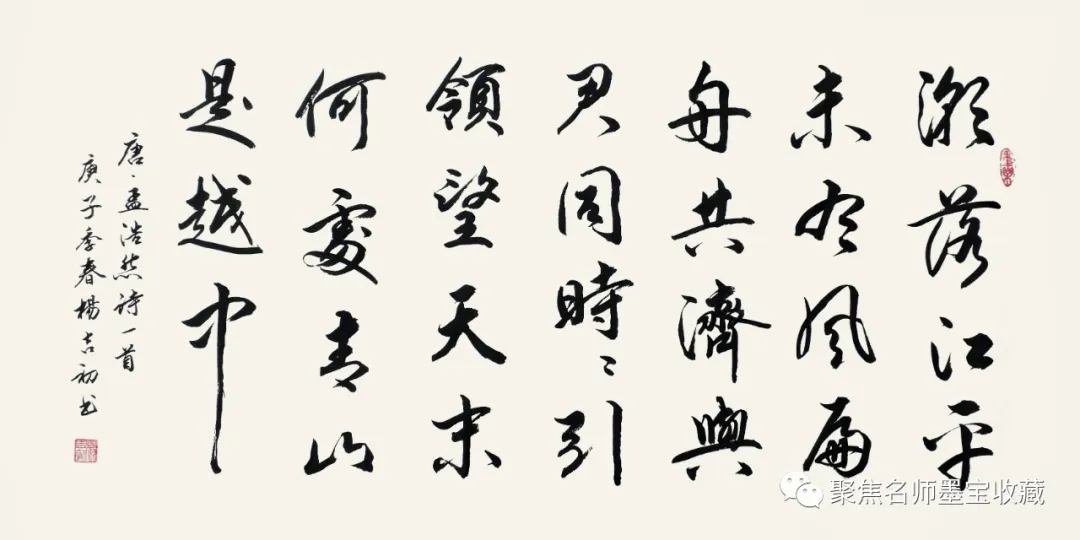 潮落江平
未有风扁
舟共濟與
君同時〻引
領望天末
何處青山
是越中
唐·孟浩然詩一首
庚子季春楊吉初书
聚焦名师墨宝收藏